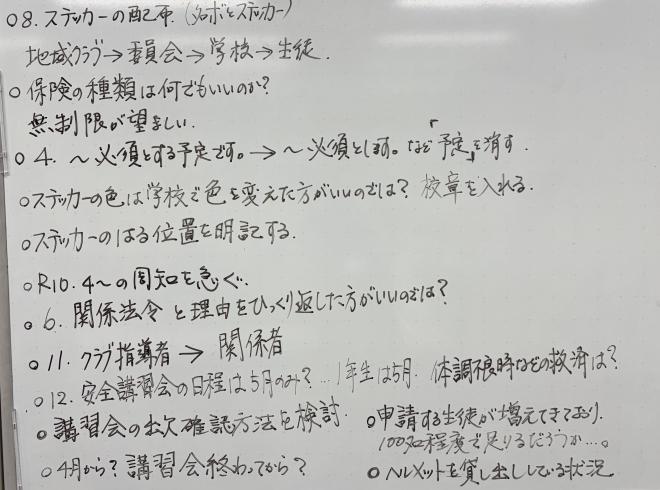 ○8.ステッカーの配布.(名ボとステッカー)
地域クラブ→委員会→学校→生徒.
○保険の種類は何でもいいのか?
無制限が望ましい.
○4. ～必須とする予定です。→～必須とします。など「予定」を消す.
○ステッカーの色は学校で色を変えた方がいいのでは? 校章を入れる.
○ステッカーのはる位置を明記する.
○R10.4～の周知を急ぐ.
○6.関係法令と理由をひっくり返した方がいいのでは?
○11.クラブ指導者→関係者
○12.安全講習会の日程は5月のみ?…1年生は5月. 体調不良時などの救済は?
○講習会の出欠確認方法を検討.
○4月から?講習会終わってから?
○申請する生徒が増えてきており.
100名程度で足りるだろうか…。
○ヘルメットを貸し出ししている状況